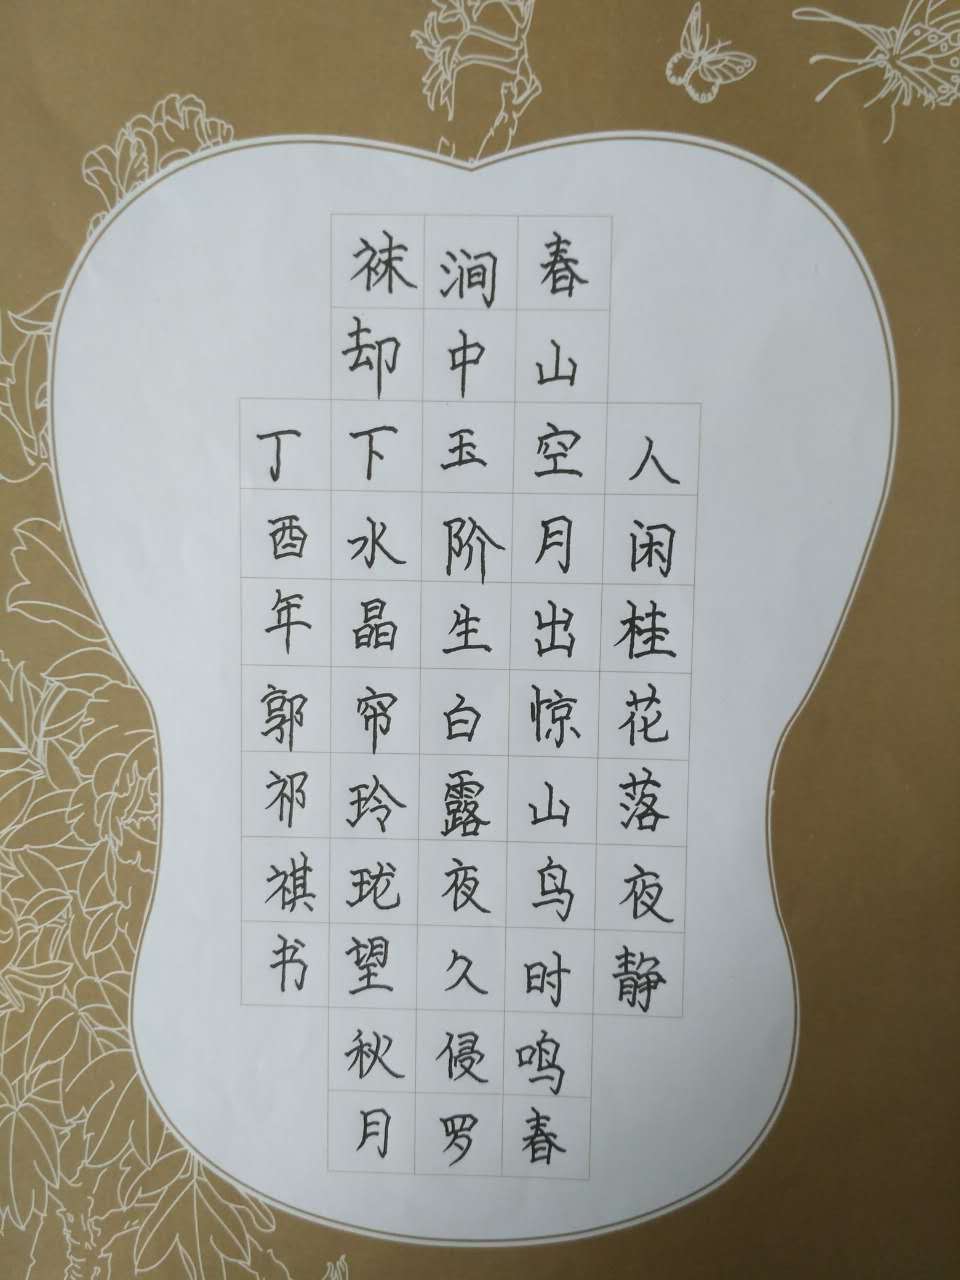 人闲桂花落夜静
春山空月出惊山鸟时鸣春
涧中玉阶生白露夜久侵罗
袜却下水晶帘玲珑望秋月
丁酉年郭祁祺书